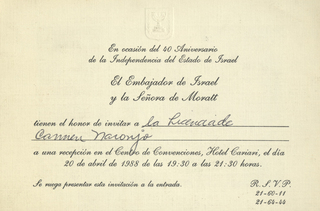 En ocasión del 40 Aniversario
de la Independencia del Estado de Israel
El Embajador de Israel
y la Señora de Moratt
tienen el honor de invitar a la Licenciada
Carmen Naranjo
a una recepción en el Centro de Convenciones, Hotel Cariari, el día
20 de abril de 1988 de las 19:30 a las 21:30 horas.
Se ruega presentar esta invitación a la entrada.
R.S.V.P.
21-60-11
21-64-44